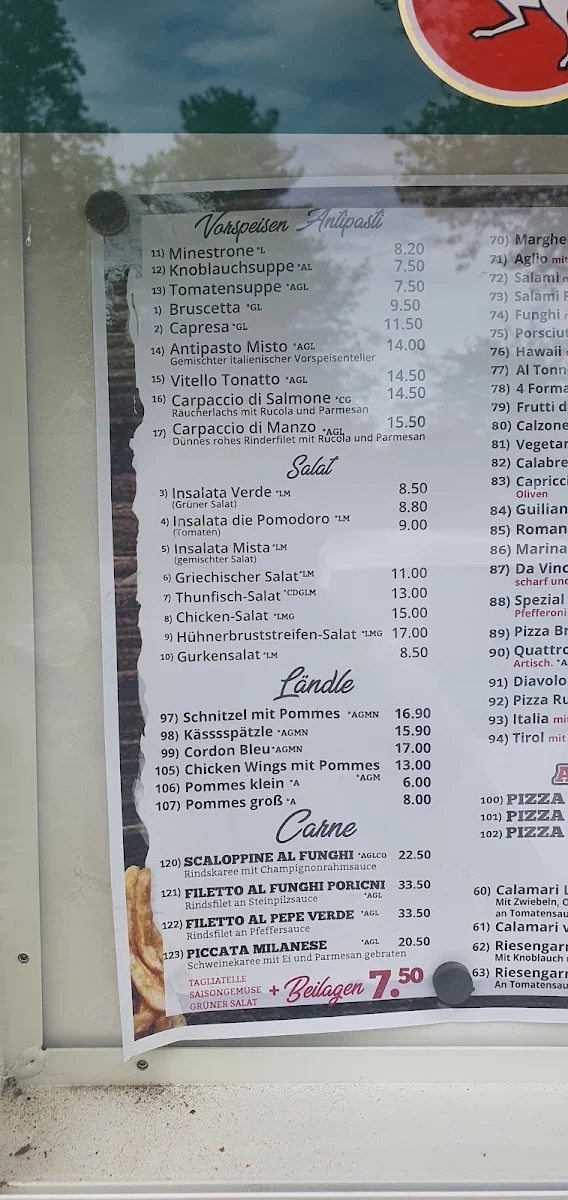 Vorspeisen Antipasti
11) Minestrone *L 8.20
12) Knoblauchsuppe *AL 7.50
13) Tomatensuppe *AGL 7.50
1) Bruscetta *GL 9.50
2) Capresa *GL 11.50
14) Antipasto Misto *AGL 14.00
Gemischter italienischer Vorspeisenteller
15) Vitello Tonatto *AGL 14.50
16) Carpaccio di Salmone *CG 14.50
Räucherlachs mit Rucola und Parmesan
17) Carpaccio di Manzo *AGL 15.50
Dünnes rohes Rinderfilet mit Rucola und Parmesan
Salat
3) Insalata Verde *LM 8.50
(Grüner Salat) 8.80
4) Insalata die Pomodoro *LM 9.00
(Tomaten)
5) Insalata Mista *LM
(gemischter Salat)
6) Griechischer Salat *LM 11.00
7) Thunfisch-Salat *CDGLM 13.00
8) Chicken-Salat *LMG 15.00
9) Hühnerbruststreifen-Salat *LMG 17.00
10) Gurkensalat *LM 8.50
Ländle
97) Schnitzel mit Pommes *AGMN 16.90
98) Kässspätzle *AGMN 15.90
99) Cordon Bleu *AGMN 17.00
105) Chicken Wings mit Pommes 13.00
*AGM
106) Pommes klein *A 6.00
107) Pommes groß *A 8.00
Carne
120) SCALOPPINE AL FUNGHI *AGLCO 22.50
Rindskaree mit Champignonrahmsauce
121) FILETTO AL FUNGHI PORICNI 33.50
Rindsfilet an Steinpilzsauce *AGL
122) FILETTO AL PEPE VERDE *AGL 33.50
Rindsfilet an Pfeffersauce
123) PICCATA MILANESE *AGL 20.50
Schweinekaree mit Ei und Parmesan gebraten
TAGLIATELLE
SAISONGEMÜSE + Beilagen 7.50
GRÜNER SALAT
70) Marghe
71) Aglio mit
72) Salami
73) Salami
74) Funghi
75) Porsciut
76) Hawaii
77) Al Tonn
78) 4 Forma
79) Frutti d
80) Calzone
81) Vegetar
82) Calabre
83) Capricci
Oliven
84) Guilian
85) Roman
86) Marina
87) Da Vinc
scharf und
88) Spezial
Pfefferoni
89) Pizza Br
90) Quattro
Artisch. *A
91) Diavolo
92) Pizza Ru
93) Italia mi
94) Tirol mit
A
100) PIZZA
101) PIZZA
102) PIZZA
60) Calamari L
Mit Zwiebeln, O
an Tomatensau
61) Calamari v
62) Riesengarn
Mit Knoblauch
63) Riesengarn
An Tomatensau